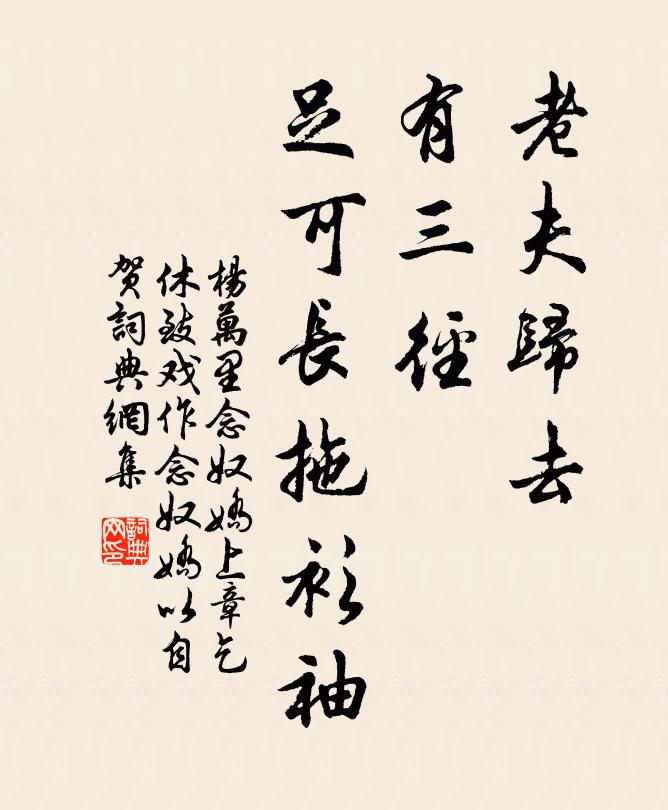 老夫歸去
有三徑
足可長拖衫袖
楊萬里念奴嬌上章乞
休致戏作念奴嬌以自
賀詞典網集
詞典
网印